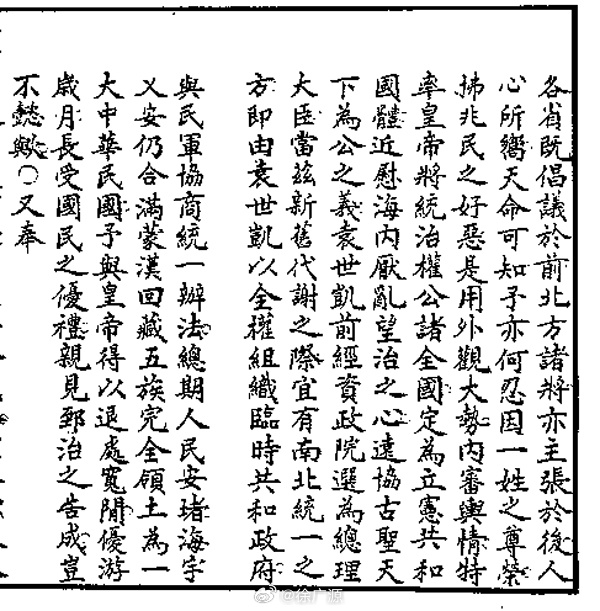 各省既倡議於前北方諸將亦主張於後人
心所嚮天命可知予亦何忍因一姓之尊榮
拂兆民之好惡是用外觀大勢內審輿情特
率皇帝將統治權公諸全國定為立憲共和
國體近慰海內厭亂望治之心遠協古聖天
下為公之義袁世凱前經資政院選為總理
大臣當茲新舊代謝之際宜有南北統一之
方即由袁世凱以全權組織臨時共和政府
與民軍協商統一辦法總期人民安堵海宇
乂安仍合滿蒙漢回藏五族完全領土為一
大中華民國予與皇帝得以退處寬閒優游
歲月長受國民之優禮親見郅治之告成豈
不懿歟〇又奉
@徐广源